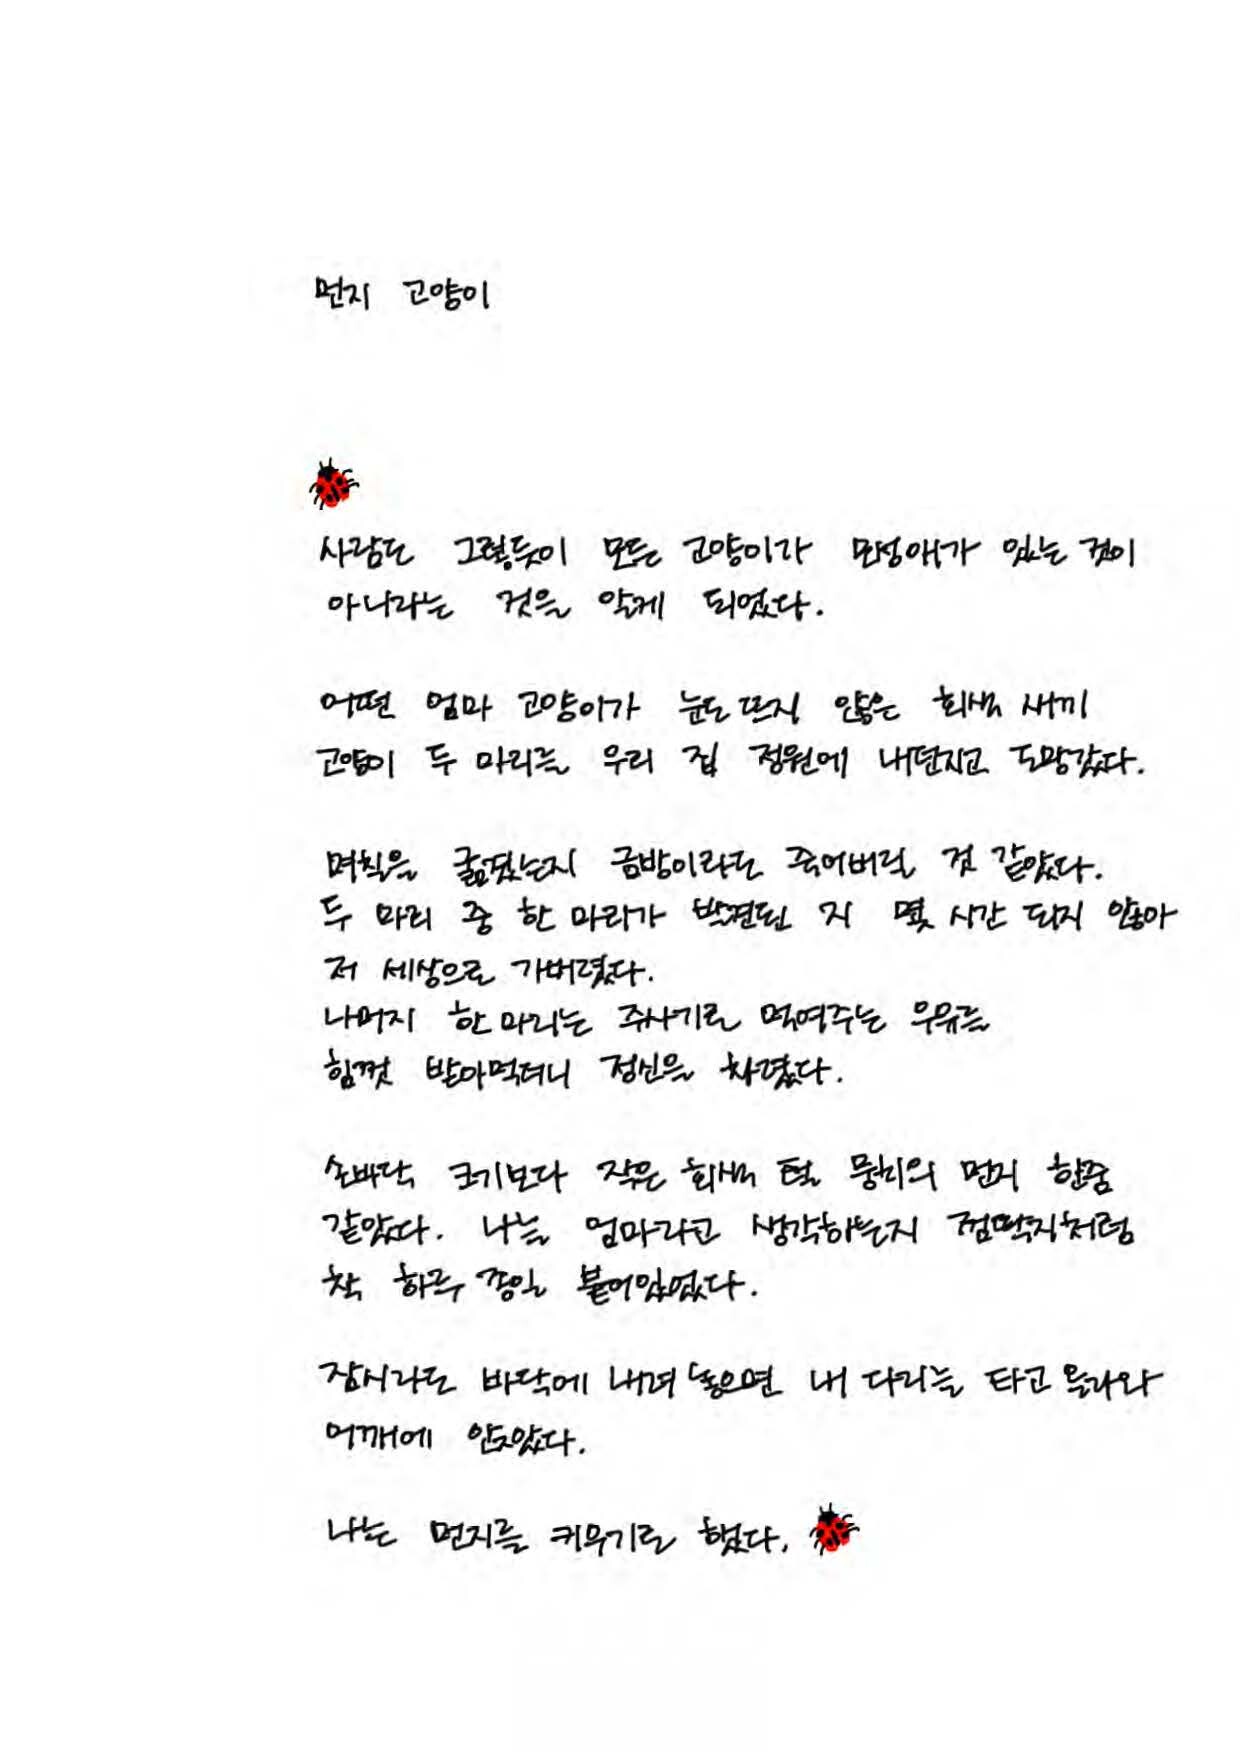 먼지 고양이
사람도 그렇듯이 모든 고양이가 모성애가 있는 것이
아니라는 것을 알게 되었다.
어떤 엄마 고양이가 눈도 뜨지 않은 회색 새끼
고양이 두 마리를 우리 집 정원에 내던지고 도망갔다.
며칠을 굶겼는지 금방이라도 죽어버릴 것 같았다.
두 마리 중 한 마리가 발견된 지 몇 시간 되지 않아
저 세상으로 가버렸다.
나머지 한 마리는 주사기로 먹여주는 우유를
힘껏 받아먹더니 정신을 차렸다.
손바닥 크기보다 작은 회색 털 뭉치의 먼지 한줌
같았다. 나를 엄마라고 생각하는지 껌딱지처럼
착 하루 종일 붙어있었다.
잠시라도 바닥에 내려 놓으면 내 다리를 타고 올라와
어깨에 앉았다.
나는 먼지를 키우기로 했다.